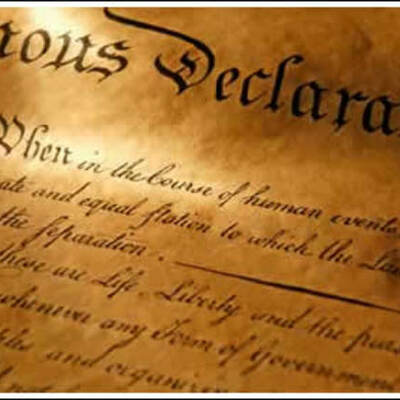 mous Declara
When in the Course of human events
ate and equal station to which the La
the separation.
these are Life, Liberty and the purs
whenever any Form of Government
and organi